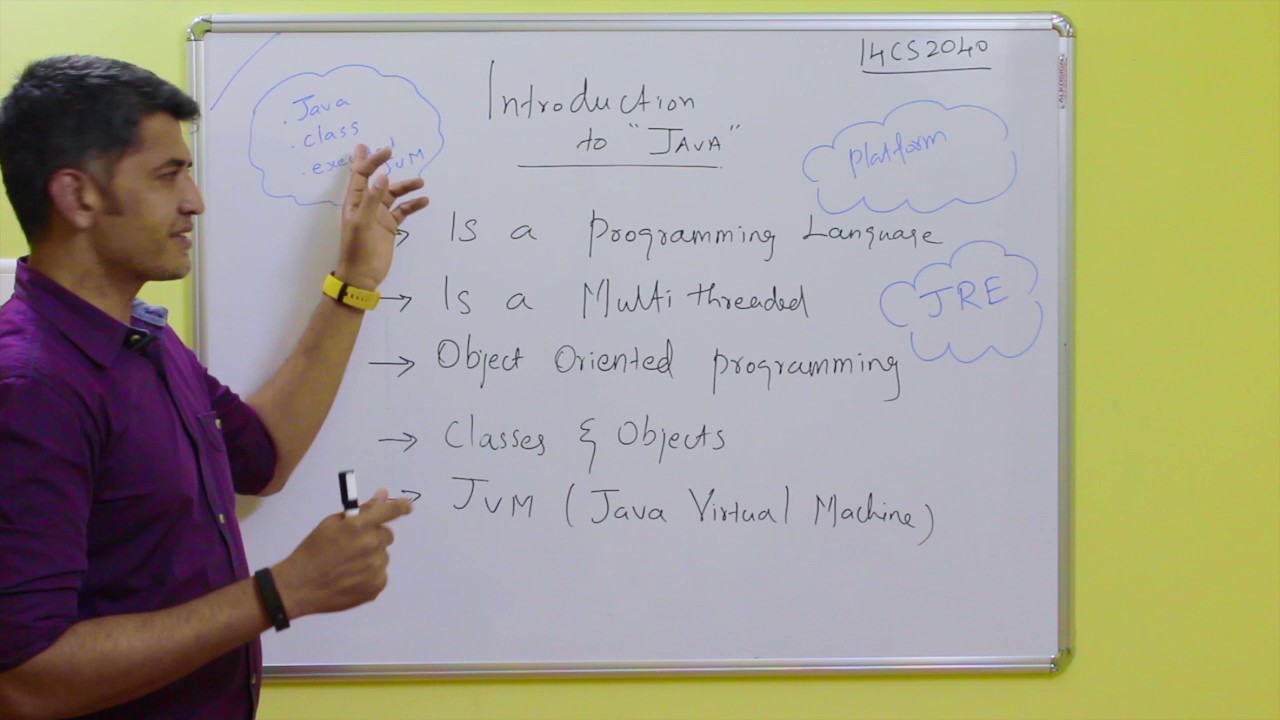 14CS2040
Introduction
to "JAVA"
.Java
.class
JVM
platform
Is a Programming Language
JRE
→ Is a Multi threaded
→ Object Oriented programming
→ Classes & Objects
→ JVM (Java Virtual Machine)